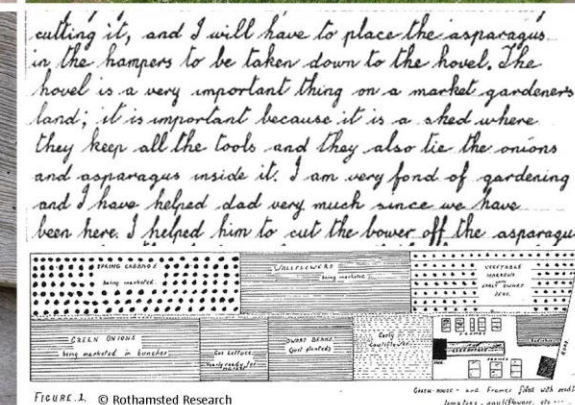 cutting it, and I will have to place the asparagus
in the hampers to be taken down to the hovel. The
hovel is a very important thing on a market gardeners
land; it is important because it is a shed where
they keep all the tools and they also tie the onions
and asparagus inside it. I am very fond of gardening
and I have helped dad very much since we have
been here. I helped him to cut the bower off the asparagu
SPRING CABBAGE
being marketed.
WALLFLOWERS
being marketed.
VEGETABLE
MARROWS
with
EARLY DWARF
PEAS.
GREEN ONIONS
being marketed in bunches.
Cos Lettuce
nearly ready for
market
DWARF BEANS
(just planted)
Early
Cauliflower
FRAMES
GREENHOUSE
FRAMES
FIGURE.1. © Rothamsted Research
GREEN-HOUSE - and Frames filled with
tomatoes, cauliflowers, etc